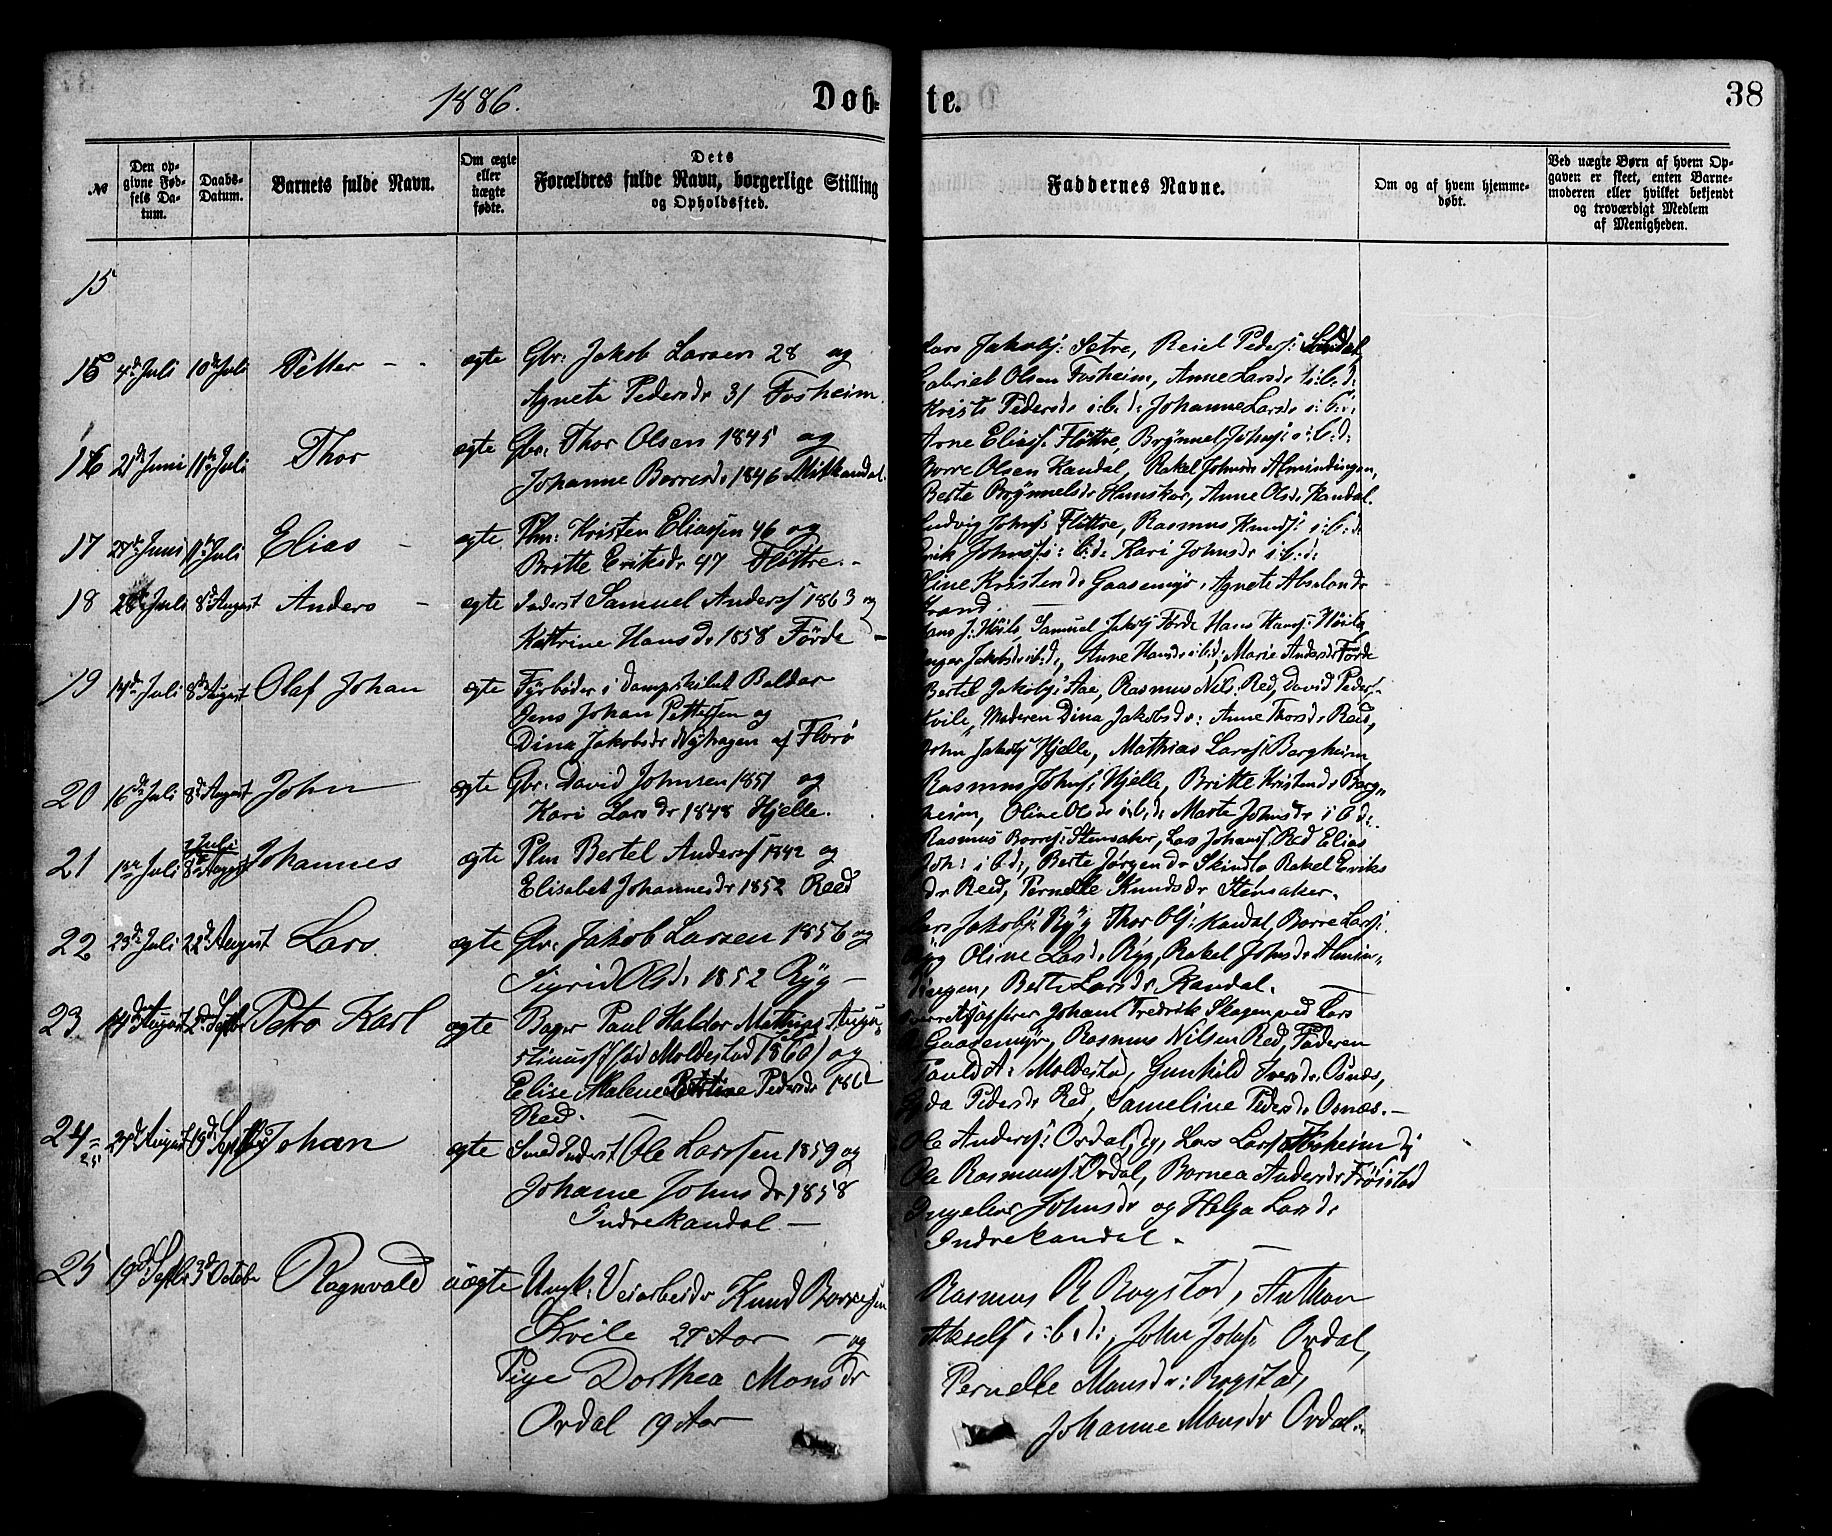 1886.
Døb-
te.
38
№
Den op-
givne Fød-
sels Da-
tum.
Daabs-
Datum.
Barnets fulde Navn.
Om ægte
eller
uægte
fødte.
Dets
Forældres fulde Navn, borgerlige Stilling
og Opholdssted.
Faddernes Navne.
Om og af hvem hjemme-
døbt.
Ved uægte Børn af hvem Op-
gaven er skeet, enten Barne-
moderen eller hvilket bekjendt
og troværdigt Medlem
af Menigheden.
15
15 4de Juli 10de Juli Petter - - ægte Gbr: Jakob Larsen 28 og
Agnete Pedersdr 31 Fosheim.
Lars Jakobs: Sætre, Reiel Peders:
Gabriel Olsen Fosheim, Anne Larsdr i:b:d:
Kristi Pedersdr i:b:d: Johanne Larsdr i:b:d:
16 21de Juni 11te Juli Thor ægte Gbr: Thor Olsen 1845 og
Johanne Borresdr 1846 Mitkandal.
Arne Eliass: Fløttre, Brynnel Johns: i:b:d:
Borre Olsen Kandal, Rakel Johnsdr Almindingen,
Berte Brynnelsdr Hamskar, Anne Olsdr Kandal.
17 27de Juni 11te Juli Elias - ægte Plm: Kristen Eliassen 46 og
Britte Eriksdr 47 Fløttre. -
Ludvig Johns: Fløttre, Rasmus Knuds: i:b:d:
Erik Johns: i:b:d: Kari Johnsdr i:b:d:
Oline Kristensdr Gaasemyr, Agnete Absalonsdr
Strand. -
18 28de Juli 8de August Anders - ægte Inderst Samuel Anders 1863 og
Kattrine Hansdr 1858 Førde -
Hans J: Høile, Samuel Jakobs Førde Hans Hans: Høile,
Inger Jakobsdr i:b:d:, Anne Hansdr i:b:d:, Marie Andersdr Førde
19 14de Juli 8de August Olaf Johan ægte Fyrbøder i Dampskibet Balder
Jens Johan Pettersen og
Dina Jakobsdr Nyhagen af Florø
Bertel Jakobs: Aae, Rasmus Nils. Red, David Peders.
Kvile, Moderen Dina Jakobsdr: Anne Thorsdr Reed,
20 16de Juli 8de August John ægte Gbr: David Johnsen 1851 og
Kari Larsdr 1848 Hjelle.
John Jakobs Hjelle, Mathias Lars: Bergheim,
Rasmus Johns: Hjelle, Britte Kristensdr Berg-
heim, Oline Olsdr i:b:d: Marte Johnsdr i b d:
21 1ste Juli Juli 8de August Johannes ægte Plm Bertel Anders 1842 og
Elisabet Johannesdr 1852 Reed
Rasmus Borres: Stensaker, Lars Johans Red Elias
Joh: i b:d:, Berte Jørgensdr Skinlo, Rakel Eriks
dr Reed, Pernelle Knudsdr Stensaker.
22 23de Juli 22de August Lars. ægte Gbr: Jakob Larsen 1856 og
Sigrid Olsdr 1852 Ryg -
Lars Jakobs: Ryg Thor Ols: Kandal, Borre Lars:
Ryg Oline Larsdr Ryg, Rakel Johnsdr Almin-
dingen, Berte Larsdr Kandal. -
23 14de August 12te Septbr Petro Karl ægte Bager Paul Haldor Mathias Augu-
stinus (fød Moldestad 1860) og
Elise Malene Pedersdr 186
Red. -
Johant Fredrik Skagen ved Lars
Gaasemyr, Rasmus Nilsen Red, Faderen
Moldestad, Gunhild Iversdr Osnæs,
Pedersdr Red, Sameline Pedersdr Osnæs. -
24 25 27de August 19de Septbr Johan ægte Smed Inderst Ole Larssen 1859 og
Johanne Johnsdr 1858
Indrekandal -
Ole Anders: Ordal, Lars Lars Fosheim
Ole Rasmus: Ordal, Bornea Andersdr Frøistad
Ingeborg Johnsdr og Helga Larsdr
Indrekandal. -
25 19de Septbr 3de October Ragnvald uægte Ungk: Veiarbeider Knud Borresen
Kvile 27 Aar - og
Pige Dorthea Monsdr
Ordal 19 Aar
Rasmus R Rogstad, Anthon
Aksels i:b:d:, John Johs: Ordal,
Pernelle Monsdr: Rogstad,
Johanne Monsdr Ordal.